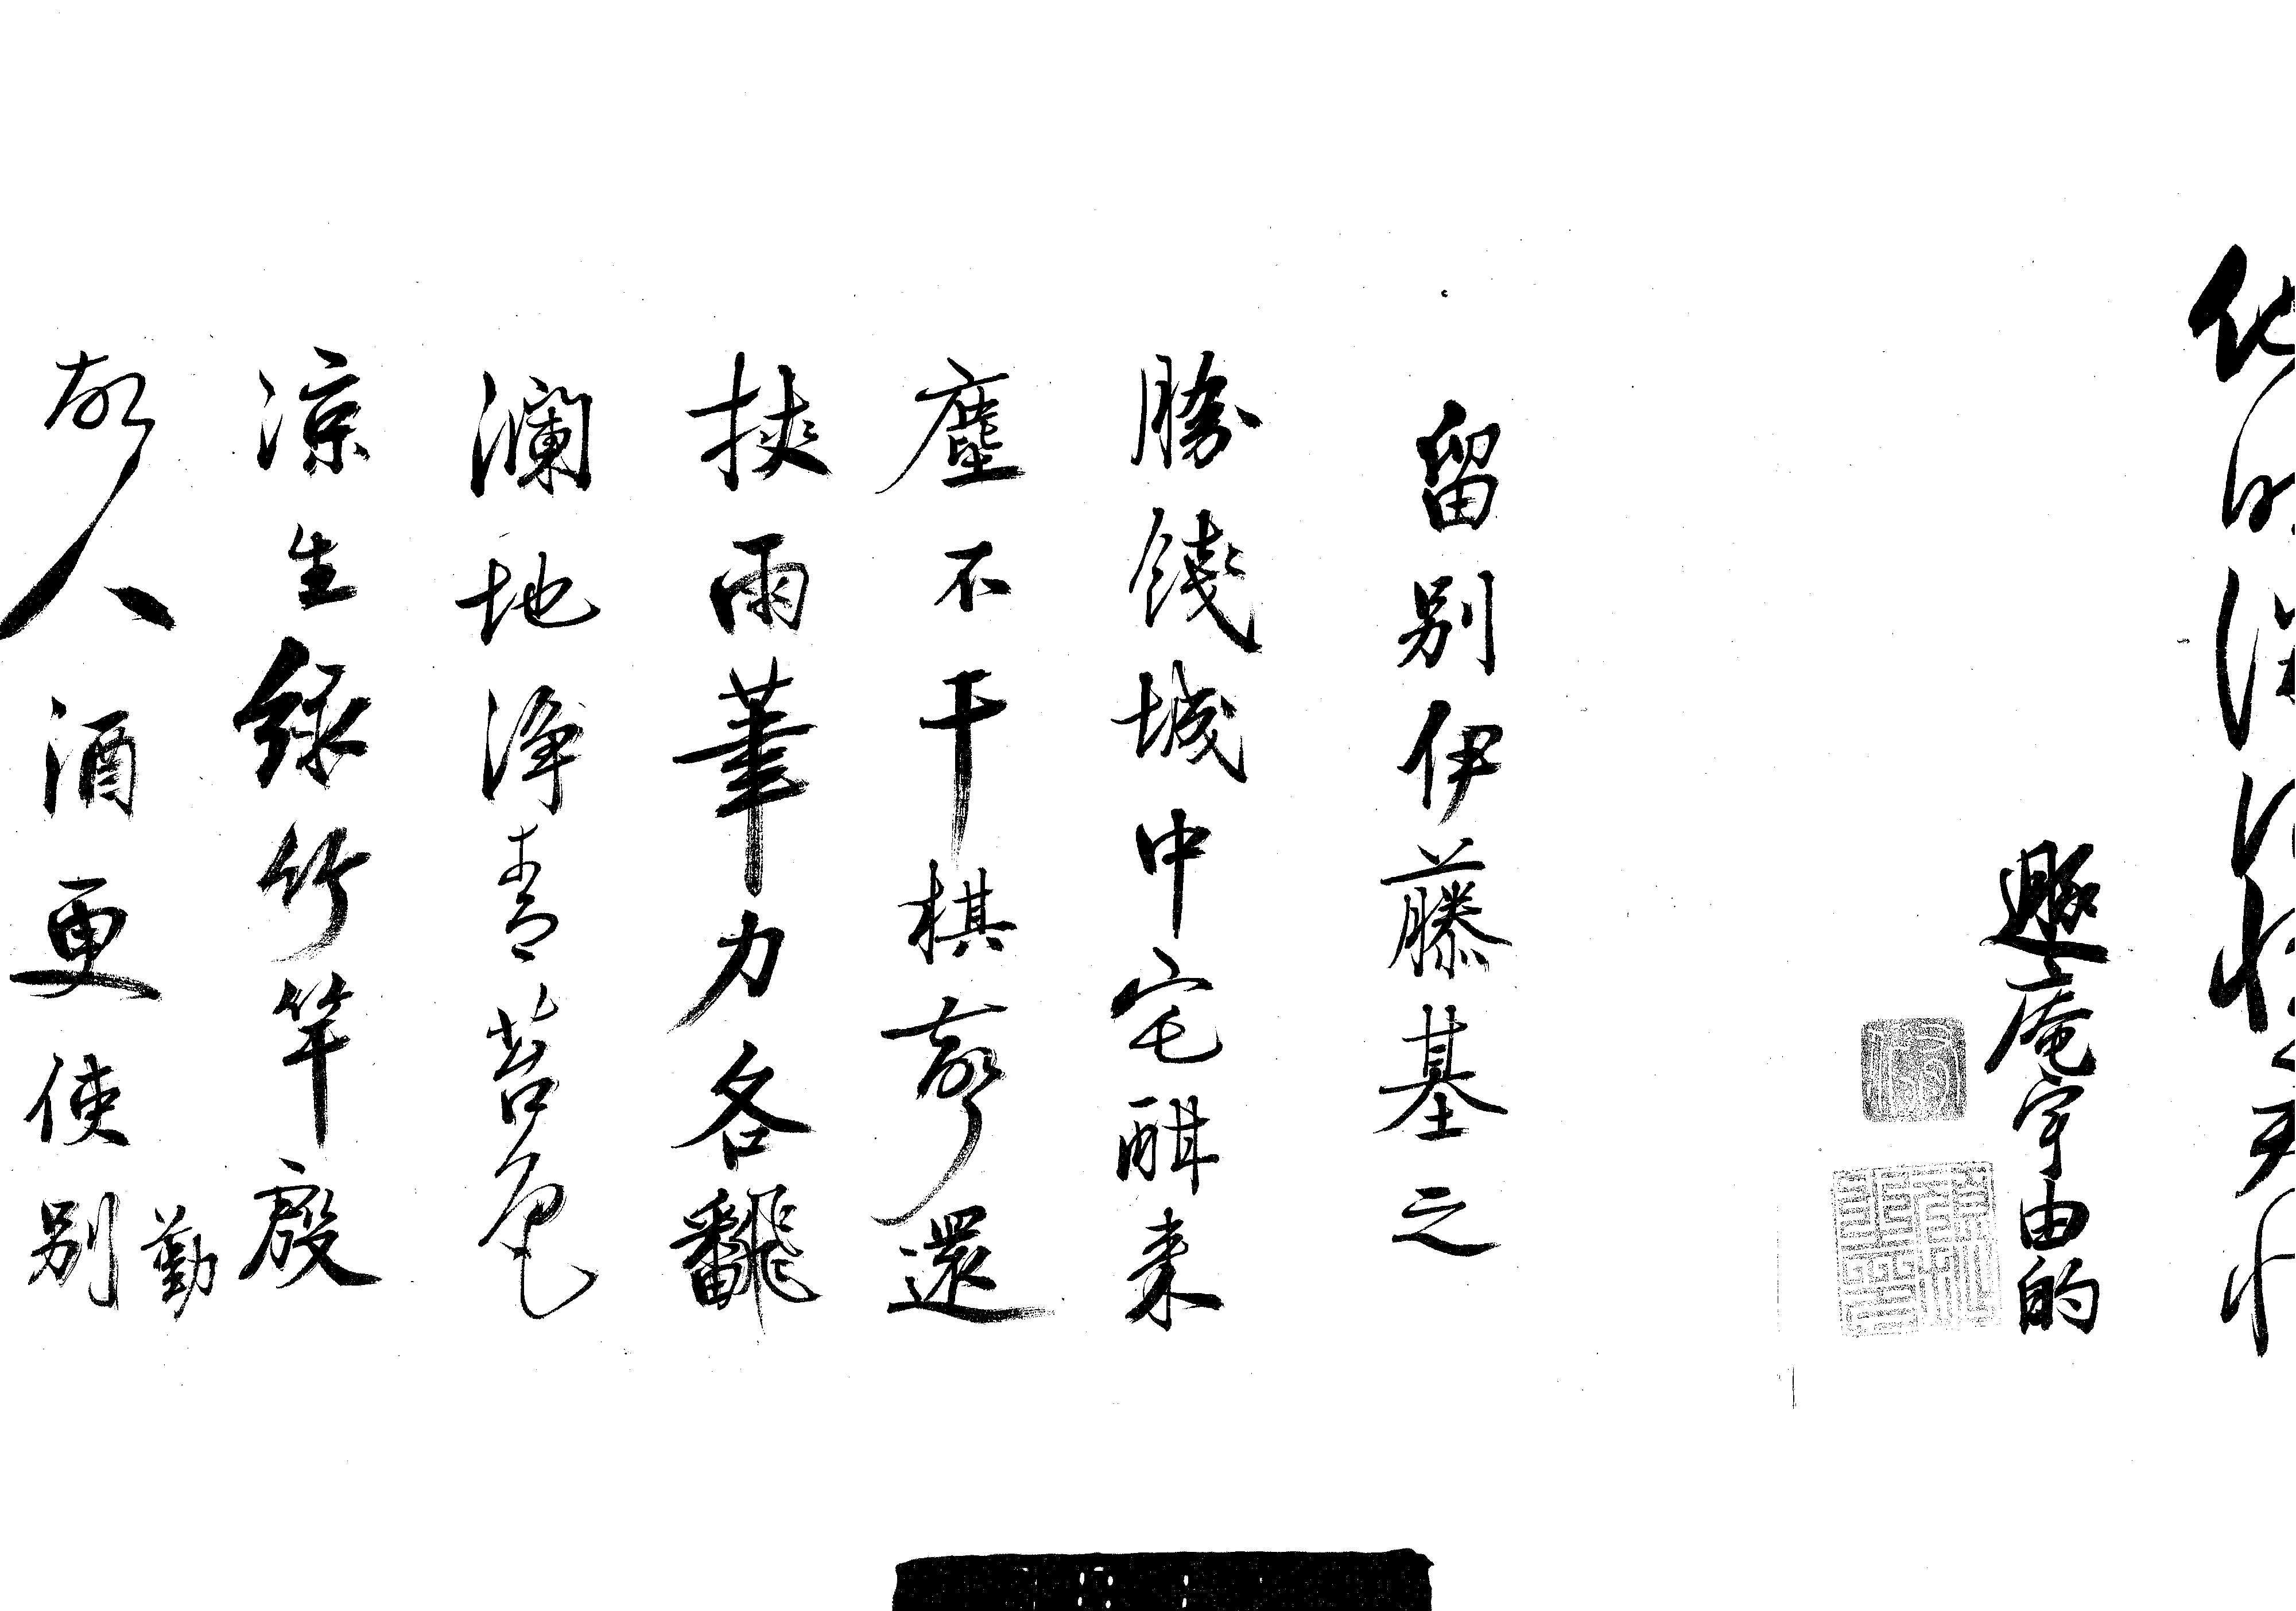 遯庵宇由的
留別伊藤基之
勝餞城中宅酣来
塵不干棋聲還
挾雨筆力各飜
瀾地浄青苔色
涼生緑竹竿殷勤
故人酒更使別